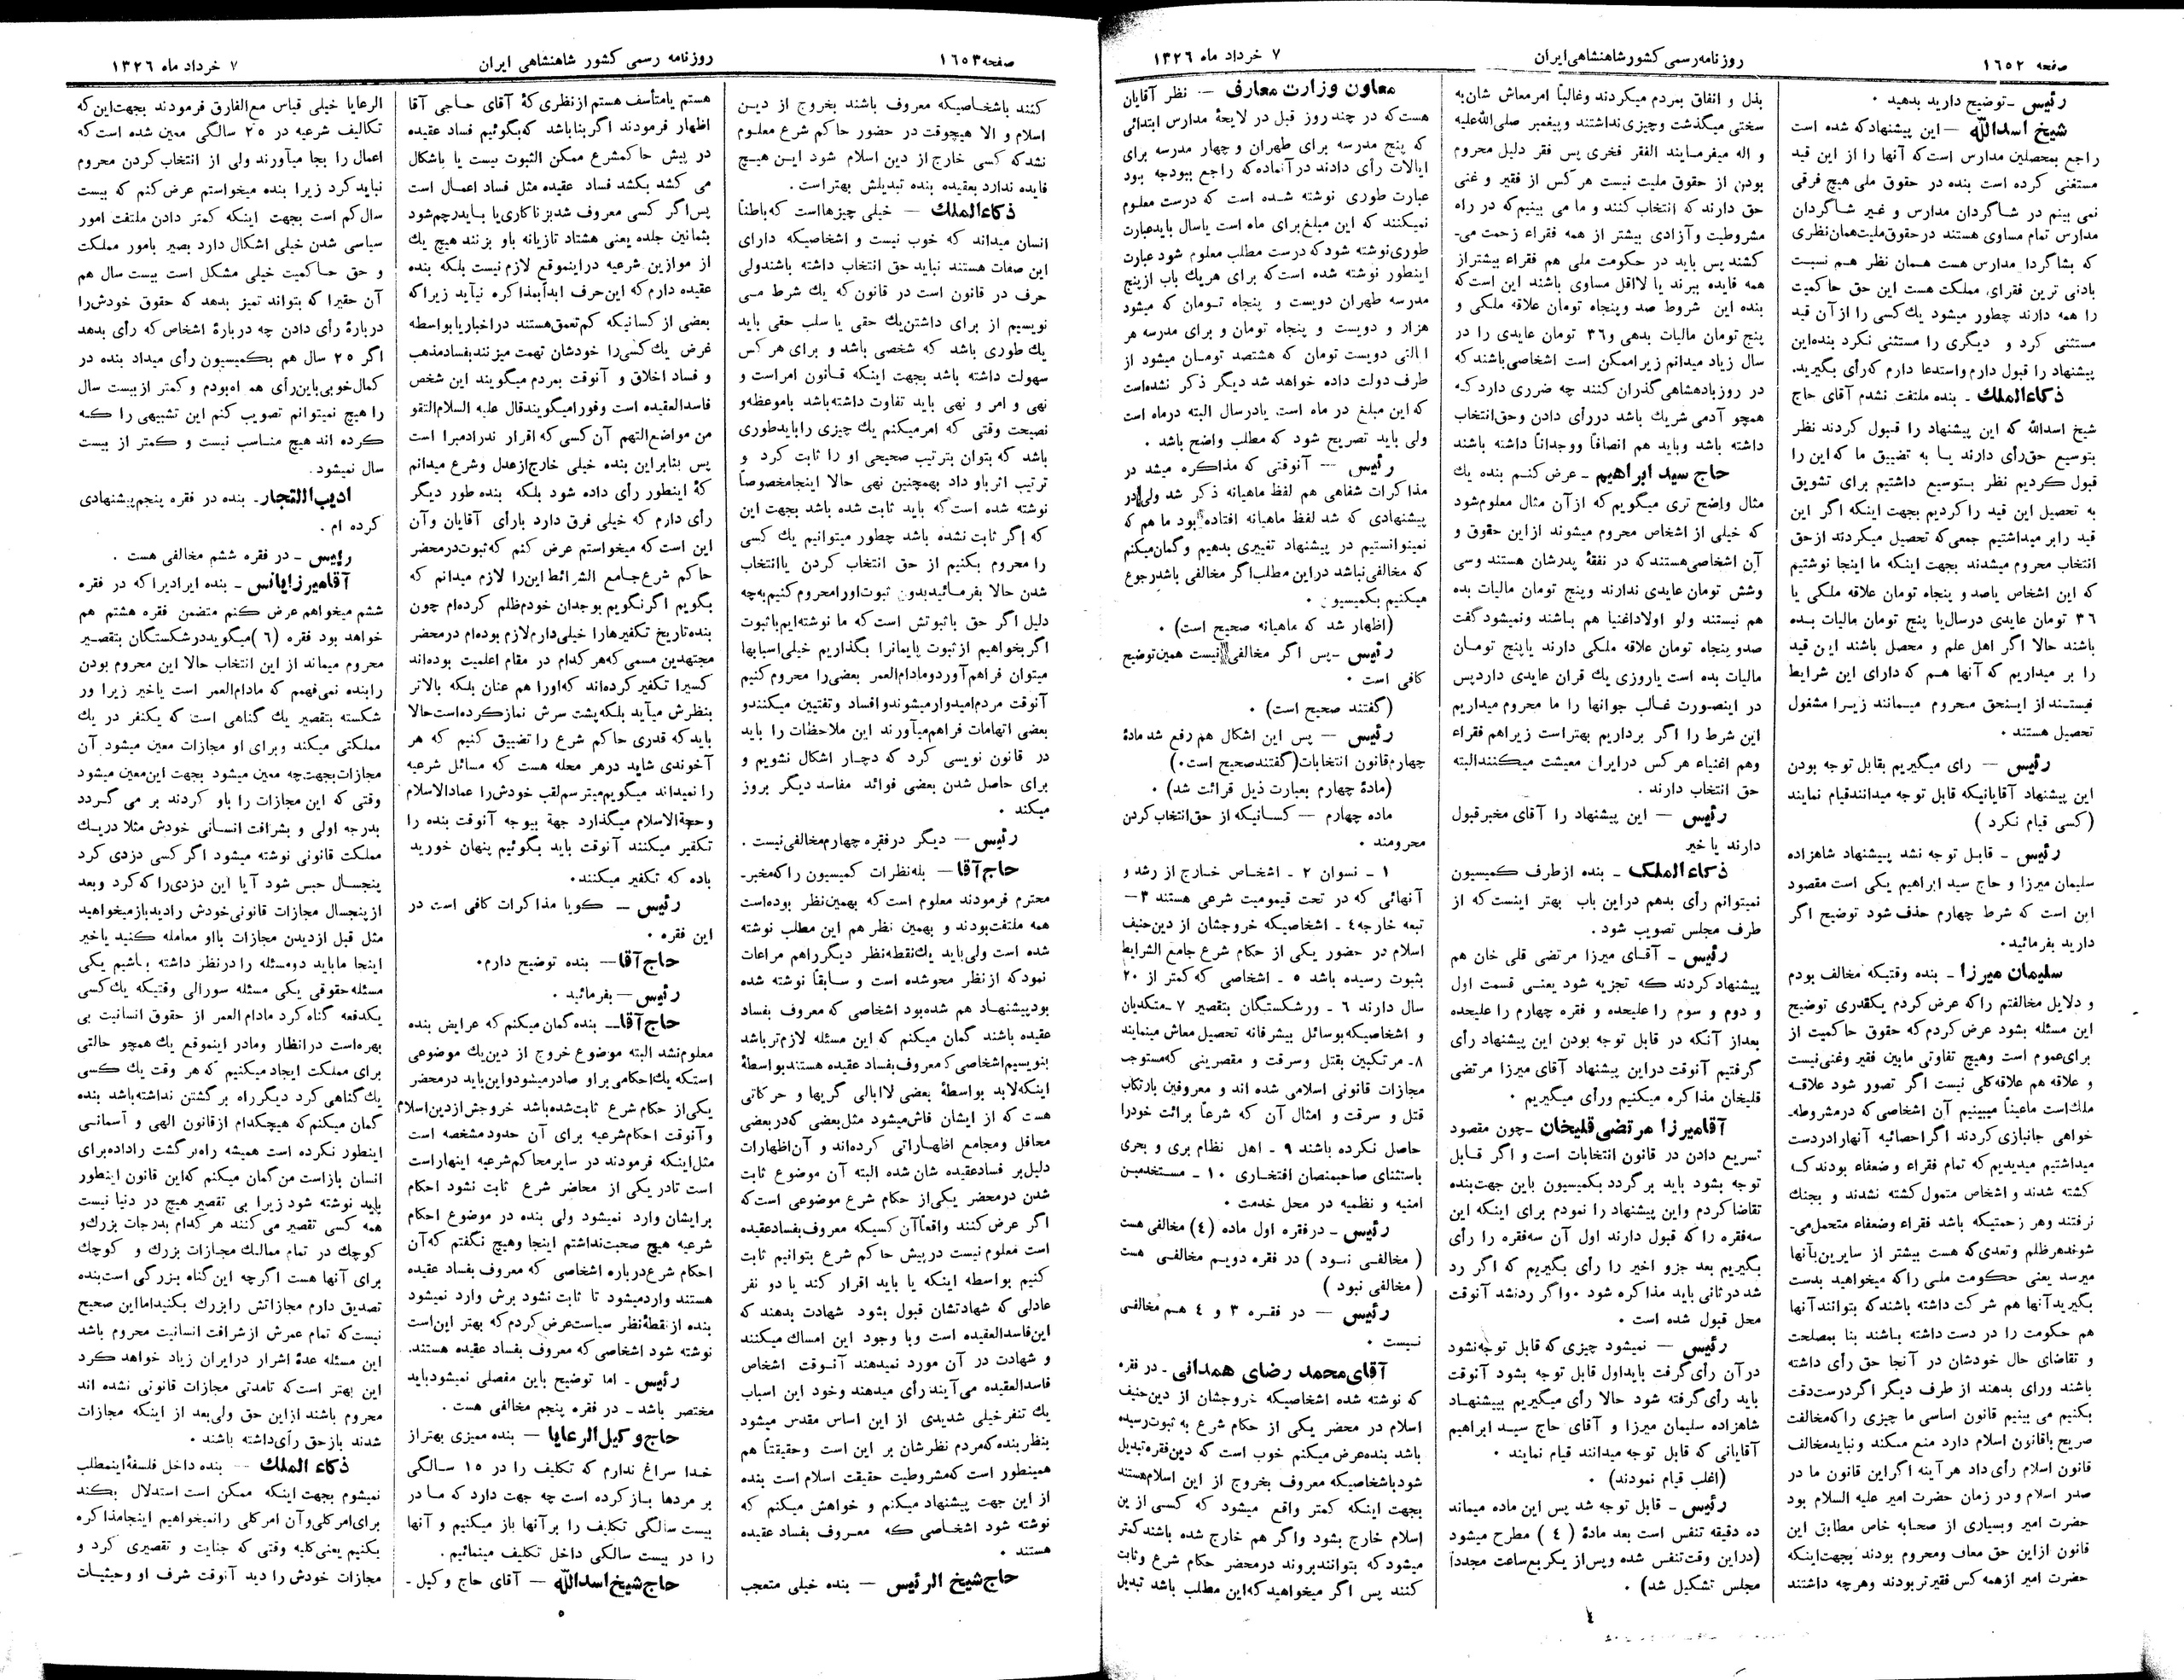 صفحه ۱٦٥۲
روزنامه رسمی کشور شاهنشاهی ایران
۷ خرداد ماه ۱۳۲٦
رئیس ـ توضیح دارید بدهید ۰
شیخ اسدالله — این پیشنهاد که شده است
راجع بمحصلین مدارس است که آنها را از این قید
مستغنی کرده است بنده در حقوق ملی هیچ فرقی
نمی بینم در شاگردان مدارس و غیر شاگردان
مدارس تمام مساوی هستند در حقوق ملیت همان نظری
که بشاگردا مدارس هست همان نظر هم نسبت
بادنی ترین فقرای مملکت هست این حق حاکمیت
را همه دارند چطور میشود یك کسی را از آن قید
مستثنی کرد و دیگری را مستثنی نکرد بنده این
پیشنهاد را قبول دارم واستدعا دارم که رأی بگیرید.
ذکاءالملك ـ بنده ملتفت نشدم آقای حاج
شیخ اسدالله که این پیشنهاد را قبول کردند نظر
بتوسیع حق رأی دارند یا به تضییق ما که این را
قبول کردیم نظر بتوسیع داشتیم برای تشویق
به تحصیل این قید را کردیم بجهت اینکه اگر این
قید رابر میداشتیم جمعی که تحصیل میکردند از حق
انتخاب محروم میشدند بجهت اینکه ما اینجا نوشتیم
که این اشخاص یاصد و پنجاه تومان علاقه ملکی یا
۳٦ تومان عایدی در سال یا پنج تومان مالیات بده
باشند حالا اگر اهل علم و محصل باشند این قید
را بر میداریم که آنها هم که دارای این شرایط
نیستند از اینحق محروم میمانند زیرا مشغول
تحصیل هستند ۰
رئیس — رای میگیریم بقابل توجه بودن
این پیشنهاد آقایانیکه قابل توجه میدانند قیام نمایند
(کسی قیام نکرد )
رئیس ـ قابل توجه نشد پیشنهاد شاهزاده
سلیمان میرزا و حاج سید ابراهیم یکی است مقصود
این است که شرط چهارم حذف شود توضیح اگر
دارید بفرمائید۰
سلیمان میرزا ـ بنده وقتیکه مخالف بودم
و دلایل مخالفتم را که عرض کردم یکقدری توضیح
این مسئله بشود عرض کردم که حقوق حاکمیت از
برای عموم است وهیچ تفاوتی مابین فقیر وغنی نیست
و علاقه هم علاقه کلی نیست اگر تصور شود علاقه
ملك است ماعیناً میبینیم آن اشخاصی که در مشروطه‌ـ
خواهی جانبازی کردند اگر احصائیه آنهارا در دست
میداشتیم میدیدیم که تمام فقراء و ضعفاء بودند که
کشته شدند و اشخاص متمول کشته نشدند و بجنك
نرفتند وهر زحمتیکه باشد فقراء وضعفاء متحمل می‌ـ
شوند هر ظلم وتعدی که هست بیشتر از سایرین بآنها
میرسد یعنی حکومت ملی را که میخواهید بدست
بگیرید آنها هم شرکت داشته باشند که بتوانند آنها
هم حکومت را در دست داشته باشند بنا بمصلحت
و تقاضای حال خودشان در آنجا حق رأی داشته
باشند ورای بدهند از طرف دیگر اگر درست دقت
بکنیم می بینیم قانون اساسی ما چیزی را که مخالفت
صریح باقانون اسلام دارد منع میکند و نباید مخالف
قانون اسلام رأی داد هر آینه اگر این قانون ما در
صدر اسلام و در زمان حضرت امیر علیه السلام بود
حضرت امیر وبسیاری از صحابه خاص مطابق این
قانون از این حق معاف ومحروم بودند بجهت اینکه
حضرت امیر از همه کس فقیرتر بودند وهرچه داشتند
بذل و انفاق بمردم میکردند وغالباً امر معاش شان به
سختی میگذشت وچیزی نداشتند وپیغمبر صلی الله علیه
و اله میفرمایند الفقر فخری پس فقر دلیل محروم
بودن از حقوق ملیت نیست هر کس از فقیر و غنی
حق دارند که انتخاب کنند و ما می بینیم که در راه
مشروطیت و آزادی بیشتر از همه فقراء زحمت می‌ـ
کشند پس باید در حکومت ملی هم فقراء بیشتر از
همه فایده ببرند یا لااقل مساوی باشند این است که
بنده این شروط صد وپنجاه تومان علاقه ملکی و
پنج تومان مالیات بدهی و ۳٦ تومان عایدی را در
سال زیاد میدانم زیرا ممکن است اشخاصی باشند که
در روز بادهشاهی گذران کنند چه ضرری دارد که
همچو آدمی شریك باشد در رأی دادن وحق انتخاب
داشته باشد وباید هم انصافاً ووجداناً داشته باشند
حاج سید ابراهیم ـ عرض کنم بنده یك
مثال واضح تری میگویم که از آن مثال معلوم شود
که خیلی از اشخاص محروم میشوند از این حقوق و
آن اشخاصی هستند که در نفقهٔ پدرشان هستند وسی
وشش تومان عایدی ندارند وپنج تومان مالیات بده
هم نیستند ولو اولاد اغنیا هم باشند ونمیشود گفت
صدو پنجاه تومان علاقه ملکی دارند یا پنج تومان
مالیات بده است یا روزی یك قران عایدی دارد پس
در اینصورت غالب جوانها را ما محروم میداریم
این شرط را اگر برداریم بهتر است زیرا هم فقراء
وهم اغنیاء هر کس در ایران معیشت میکنند البته
حق انتخاب دارند ۰
رئیس — این پیشنهاد را آقای مخبر قبول
دارند یا خیر
ذکاءالملك ـ بنده از طرف کمیسیون
نمیتوانم رأی بدهم در این باب بهتر اینست که از
طرف مجلس تصویب شود ۰
رئیس ـ آقای میرزا مرتضی قلی خان هم
پیشنهاد کردند که تجزیه شود یعنی قسمت اول
و دوم و سوم را علیحده و فقره چهارم را علیحده
بعد از آنکه در قابل توجه بودن این پیشنهاد رأی
گرفتیم آنوقت در این پیشنهاد آقای میرزا مرتضی
قلیخان مذاکره میکنیم ورأی میگیریم ۰
آقامیرزا مرتضی قلیخان ـ چون مقصود
تسریع دادن در قانون انتخابات است و اگر قابل
توجه بشود باید بر گردد بکمیسیون باین جهت بنده
تقاضا کردم واین پیشنهاد را نمودم برای اینکه این
سه فقره را که قبول دارند اول آن سه فقره را رأی
بگیریم بعد جزو اخیر را رأی بگیریم که اگر رد
شد در ثانی باید مذاکره شود ۰ واگر رد نشد آنوقت
محل قبول شده است ۰
رئیس — نمیشود چیزی که قابل توجه نشود
در آن رأی گرفت باید اول قابل توجه بشود آنوقت
باید رأی گرفته شود حالا رأی میگیریم بپیشنهاد
شاهزاده سلیمان میرزا و آقای حاج سید ابراهیم
آقایانی که قابل توجه میدانند قیام نمایند ۰
(اغلب قیام نمودند) ۰
رئیس ـ قابل توجه شد پس این ماده میماند
ده دقیقه تنفس است بعد مادهٔ ( ٤ ) مطرح میشود
(در این وقت تنفس شده وپس از یکربع ساعت مجدداً
مجلس تشکیل شد) ۰
معاون وزارت معارف — نظر آقایان
هست که در چند روز قبل در لایحهٔ مدارس ابتدائی
که پنج مدرسه برای طهران و چهار مدرسه برای
ایالات رأی دادند در آنماده که راجع ببودجه بود
عبارت طوری نوشته شده است که درست معلوم
نمیکنند که این مبلغ برای ماه است یاسال باید عبارت
طوری نوشته شود که درست مطلب معلوم شود عبارت
اینطور نوشته شده است که برای هر یك باب از پنج
مدرسه طهران دویست و پنجاه تومان که میشود
هزار و دویست و پنجاه تومان و برای مدرسه هر
ایالتی دویست تومان که هشتصد تومان میشود از
طرف دولت داده خواهد شد دیگر ذکر نشده است
که این مبلغ در ماه است یا در سال البته در ماه است
ولی باید تصریح شود که مطلب واضح باشد ۰
رئیس — آنوقتی که مذاکره میشد در
مذاکرات شفاهی هم لفظ ماهیانه ذکر شد ولی در
پیشنهادی که شد لفظ ماهیانه افتاده بود ما هم که
نمیتوانستیم در پیشنهاد تغییری بدهیم و گمان میکنم
که مخالفی نباشد در این مطلب اگر مخالفی باشد رجوع
میکنیم بکمیسیون ۰
(اظهار شد که ماهیانه صحیح است) ۰
رئیس ـ پس اگر مخالفی نیست همین توضیح
کافی است ۰
(گفتند صحیح است) ۰
رئیس — پس این اشکال هم رفع شد مادهٔ
چهارم قانون انتخابات (گفتند صحیح است۰)
(مادهٔ چهارم بعبارت ذیل قرائت شد) ۰
ماده چهارم — کسانیکه از حق انتخاب کردن
محرومند ۰
۱ ـ نسوان ۲ ـ اشخاص خارج از رشد و
آنهائی که در تحت قیمومیت شرعی هستند ۳ —
تبعه خارجه ٤ ـ اشخاصیکه خروجشان از دین حنیف
اسلام در حضور یکی از حکام شرع جامع الشرایط
بثبوت رسیده باشد ٥ ـ اشخاصی که کمتر از ۲۰
سال دارند ٦ ـ ورشکستگان بتقصیر ۷ ـ متکدیان
و اشخاصیکه بوسائل بیشرفانه تحصیل معاش مینمایند
۸ـ مرتکبین بقتل وسرقت و مقصرینی که مستوجب
مجازات قانونی اسلامی شده اند و معروفین بارتکاب
قتل و سرقت و امثال آن که شرعاً برائت خودرا
حاصل نکرده باشند ۹ ـ اهل نظام بری و بحری
باستثنای صاحبمنصان افتخاری ۱۰ ـ مستخدمین
امنیه و نظمیه در محل خدمت ۰
رئیس ـ در فقره اول ماده (٤) مخالفی هست
( مخالفی نبود ) در فقره دویم مخالفی هست
( مخالفی نبود )
رئیس — در فقره ۳ و ٤ هم مخالفی
نیست ۰
آقای محمد رضای همدانی ـ در فقره
که نوشته شده اشخاصیکه خروجشان از دین حنیف
اسلام در محضر یکی از حکام شرع به ثبوت رسیده
باشد بنده عرض میکنم خوب است که دین فقره تبدیل
شود باشخاصیکه معروف بخروج از این اسلام هستند
بجهت اینکه کمتر واقع میشود که کسی از ین
اسلام خارج بشود واگر هم خارج شده باشند کمتر
میشود که بتوانند بروند در محضر حکام شرع وثابت
کنند پس اگر میخواهید که این مطلب باشد تبدیل
٤
صفحه ۱٦٥۳
روزنامه رسمی کشور شاهنشاهی ایران
۷ خرداد ماه ۱۳۲٦
کنند باشخاصیکه معروف باشند بخروج از دین
اسلام و الا هیچوقت در حضور حاکم شرع معلوم
نشد که کسی خارج از دین اسلام شود این هیچ
فایده ندارد بعقیده بنده تبدیلش بهتر است ۰
ذکاءالملك — خیلی چیزها است که باطناً
انسان میداند که خوب نیست و اشخاصیکه دارای
این صفات هستند نباید حق انتخاب داشته باشند ولی
حرف در قانون است در قانون که یك شرط می
نویسیم از برای داشتن یك حقی یا سلب حقی باید
یك طوری باشد که شخصی باشد و برای هر کس
سهولت داشته باشد بجهت اینکه قانون امر است و
نهی و امر و نهی باید تفاوت داشته باشد باموعظه و
نصیحت وقتی که امر میکنم یك چیزی را باید طوری
باشد که بتوان بترتیب صحیحی او را ثابت کرد و
ترتیب اثر باو داد بهمچنین نهی حالا اینجا مخصوصاً
نوشته شده است که باید ثابت شده باشد بجهت این
که اگر ثابت نشده باشد چطور میتوانیم یك کسی
را محروم بکنیم از حق انتخاب کردن یا انتخاب
شدن حالا بفرمائید بدون ثبوت اورا محروم کنیم به چه
دلیل اگر حق با ثبوتش است که ما نوشته ایم با ثبوت
اگر بخواهیم از ثبوت پایمانرا بگذاریم خیلی اسبابها
میتوان فراهم آورد و مادام العمر بعضی را محروم کنیم
آنوقت مردم امیدوار میشوند و افساد و تفتین میکنند و
بعضی اتهامات فراهم میآورند این ملاحظات را باید
در قانون نویسی کرد که دچار اشکال نشویم و
برای حاصل شدن بعضی فوائد مفاسد دیگر بروز
میکند ۰
رئیس — دیگر در فقره چهارم مخالفی نیست ۰
حاج آقا — بله نظرات کمیسیون را که مخبرـ
محترم فرمودند معلوم است که بهمین نظر بوده است
همه ملتفت بودند و بهمین نظر هم این مطلب نوشته
شده است ولی باید یك نقطه نظر دیگر را هم مراعات
نمود که از نظر محو شده است و سابقاً نوشته شده
بود پیشنهاد هم شده بود اشخاصی که معروف بفساد
عقیده باشند گمان میکنم که این مسئله لازم تر باشد
بنویسیم اشخاصی که معروف بفساد عقیده هستند بواسطهٔ
اینکه لابد بواسطهٔ بعضی لاابالی گریها و حرکاتی
هست که از ایشان فاش میشود مثل بعضی که در بعضی
محافل ومجامع اظهاراتی کرده اند و آن اظهارات
دلیل بر فساد عقیده شان شده البته آن موضوع ثابت
شدن در محضر یکی از حکام شرع موضوعی است که
اگر عرض کنند واقعاً آن کسیکه معروف بفساد عقیده
است معلوم نیست در پیش حاکم شرع بتوانیم ثابت
کنیم بواسطه اینکه یا باید اقرار کند یا دو نفر
عادلی که شهادتشان قبول بشود شهادت بدهند که
این فاسدالعقیده است وبا وجود این امساك میکنند
و شهادت در آن مورد نمیدهند آنوقت اشخاص
فاسدالعقیده می آیند رأی میدهند وخود این اسباب
یك تنفر خیلی شدیدی از این اساس مقدس میشود
بنظر بنده که مردم نظرشان بر این است وحقیقتاً هم
همینطور است که مشروطیت حقیقت اسلام است بنده
از این جهت پیشنهاد میکنم و خواهش میکنم که
نوشته شود اشخاصی که معروف بفساد عقیده
هستند ۰
حاج شیخ الرئیس — بنده خیلی متعجب
هستم یا متأسف هستم از نظری که آقای حاجی آقا
اظهار فرمودند اگر بنا باشد که بگوئیم فساد عقیده
در پیش حاکم شرع ممکن الثبوت نیست یا باشکال
می کشد بکشد فساد عقیده مثل فساد اعمال است
پس اگر کسی معروف شد بزناکاری یا باید رجم شود
بثمانین جلده یعنی هشتاد تازیانه باو بزنند هیچ یك
از موازین شرعیه در اینموقع لازم نیست بلکه بنده
عقیده دارم که این حرف ابداً بمذاکره نیآید زیرا که
بعضی از کسانیکه کم تعمق هستند در اخبار یا بواسطه
غرض یك کسی را خودشان تهمت میزنند بفساد مذهب
و فساد اخلاق و آنوقت بمردم میگویند این شخص
فاسدالعقیده است وفورا میگویند قال علیه السلام اتقو
من مواضع التهم آن کسی که اقرار ندراد مبرا است
پس بنابراین بنده خیلی خارج از عدل وشرع میدانم
که اینطور رأی داده شود بلکه بنده طور دیگر
رأی دارم که خیلی فرق دارد بارأی آقایان و آن
این است که میخواستم عرض کنم که ثبوت در محضر
حاکم شرع جامع الشرائط این را لازم میدانم که
بگویم اگر نگویم بوجدان خودم ظلم کرده ام چون
بنده تاریخ تکفیرها را خیلی دارم لازم بوده ام در محضر
مجتهدین مسمی که هر کدام در مقام اعلمیت بوده اند
کسیرا تکفیر کرده اند که اورا هم عنان بلکه بالاتر
بنظرش میآید بلکه پشت سرش نماز کرده است حالا
باید که قدری حاکم شرع را تضییق کنیم که هر
آخوندی شاید در هر محله هست که مسائل شرعیه
را نمیداند میگویم میترسم لقب خودش را عماد الاسلام
وحجة الاسلام میگذارد جهة بیوجه آنوقت بنده را
تکفیر میکنند آنوقت باید بگوئیم پنهان خورید
باده که تکفیر میکنند۰
رئیس — گویا مذاکرات کافی است در
این فقره ۰
حاج آقا— بنده توضیح دارم۰
رئیس — بفرمائید ۰
حاج آقا— بنده گمان میکنم که عرایض بنده
معلوم نشد البته موضوع خروج از دین یك موضوعی
استکه یك احکامی بر او صادر میشود و این باید در محضر
یکی از حکام شرع ثابت شده باشد خروجش از دین اسلام
و آنوقت احکام شرعیه برای آن حدود مشخصه است
مثل اینکه فرمودند در سایر محاکم شرعیه اینهار است
است تا در یکی از محاضر شرع ثابت نشود احکام
بر ایشان وارد نمیشود ولی بنده در موضوع احکام
شرعیه هیچ صحبت نداشتم اینجا وهیچ نگفتم که آن
احکام شرع درباره اشخاصی که معروف بفساد عقیده
هستند وارد میشود تا ثابت نشود برش وارد نمیشود
بنده از نقطهٔ نظر سیاست عرض کردم که بهتر این است
نوشته شود اشخاصی که معروف بفساد عقیده هستند.
رئیس ـ اما توضیح باین مفصلی نمیشود باید
مختصر باشد ـ در فقره پنجم مخالفی هست ۰
حاج وکیل الرعایا — بنده ممیزی بهتر از
خدا سراغ ندارم که تکلیف را در ۱٥ سالگی
بر مردها باز کرده است چه جهت دارد که ما در
بیست سالگی تکلیف را بر آنها باز میکنیم و آنها
را در بیست سالگی داخل تکلیف مینمائیم ۰
حاج شیخ اسدالله — آقای حاج وکیل ـ
الرعایا خیلی قیاس مع الفارق فرمودند بجهت این که
تکالیف شرعیه در ۲٥ سالگی معین شده است که
اعمال را بجا میآورند ولی از انتخاب کردن محروم
نباید کرد زیرا بنده میخواستم عرض کنم که بیست
سال کم است بجهت اینکه کمتر دادن ملتفت امور
سیاسی شدن خیلی اشکال دارد بصیر بامور مملکت
و حق حاکمیت خیلی مشکل است بیست سال هم
آن حقیرا که بتواند تمیز بدهد که حقوق خودش را
دربارهٔ رأی دادن چه دربارهٔ اشخاص که رأی بدهد
اگر ۲٥ سال هم بکمیسیون رأی میداد بنده در
کمال خوبی باین رأی هم اه بودم و کمتر از بیست سال
را هیچ نمیتوانم تصویب کنم این تشبیهی را که
کرده اند هیچ مناسب نیست و کمتر از بیست
سال نمیشود.
ادیب التجار ـ بنده در فقره پنجم پیشنهادی
کرده ام ۰
رئیس ـ در فقره ششم مخالفی هست ۰
آقامیرزایانس ـ بنده ایرادیرا که در فقره
ششم میخواهم عرض کنم متضمن فقره هشتم هم
خواهد بود فقره (٦) میگوید در شکستگان بتقصیر
محروم میماند از این انتخاب حالا این محروم بودن
را بنده نمی فهمم که مادام العمر است یا خیر زیرا ور
شکسته بتقصیر یك گناهی است که یکنفر در یك
مملکتی میکند وبرای او مجازات معین میشود آن
مجازات بجهت چه معین میشود بجهت این معین میشود
وقتی که این مجازات را باو کردند بر می گردد
بدرجه اولی و بشرافت انسانی خودش مثلا در یك
مملکت قانونی نوشته میشود اگر کسی دزدی کرد
پنجسال حبس شود آیا این دزدی را که کرد وبعد
از پنجسال مجازات قانونی خودش را دید باز میخواهید
مثل قبل از دیدن مجازات بااو معامله کنید یا خیر
اینجا ما باید دو مسئله را در نظر داشته باشیم یکی
مسئله حقوقی یکی مسئله سورالی وقتیکه یك کسی
یکدفعه گناه کرد مادام العمر از حقوق انسانیت بی
بهره است در انظار ومادر اینموقع یك همچو حالتی
برای مملکت ایجاد میکنیم که هر وقت یك کسی
یك گناهی کرد دیگر راه بر گشتن نداشته باشد بنده
گمان میکنم که هیچکدام از قانون الهی و آسمانی
اینطور نکرده است همیشه راه بر گشت را داده برای
انسان باز است من گمان میکنم که این قانون اینطور
باید نوشته شود زیرا بی تقصیر هیچ در دنیا نیست
همه کسی تقصیر می کنند هر کدام بدرجات بزرك و
کوچك در تمام ممالك مجازات بزرك و کوچك
برای آنها هست اگرچه این گناه بزرگی است بنده
تصدیق دارم مجازاتش را بزرك بکنید اما این صحیح
نیست که تمام عمرش از شرافت انسانیت محروم باشد
این مسئله عدهٔ اشرار در ایران زیاد خواهد کرد
این بهتر است که تا مدتی مجازات قانونی نشده اند
محروم باشند از این حق ولی بعد از اینکه مجازات
شدند باز حق رأی داشته باشند ۰
ذکاء الملك — بنده داخل فلسفهٔ اینمطلب
نمیشوم بجهت اینکه ممکن است استدلال بکند
برای امر کلی و آن امر کلی را نمیخواهیم اینجا مذاکره
بکنیم یعنی کلیه وقتی که جنایت و تقصیری کرد و
مجازات خودش را دید آنوقت شرف او وحیثیات
٥